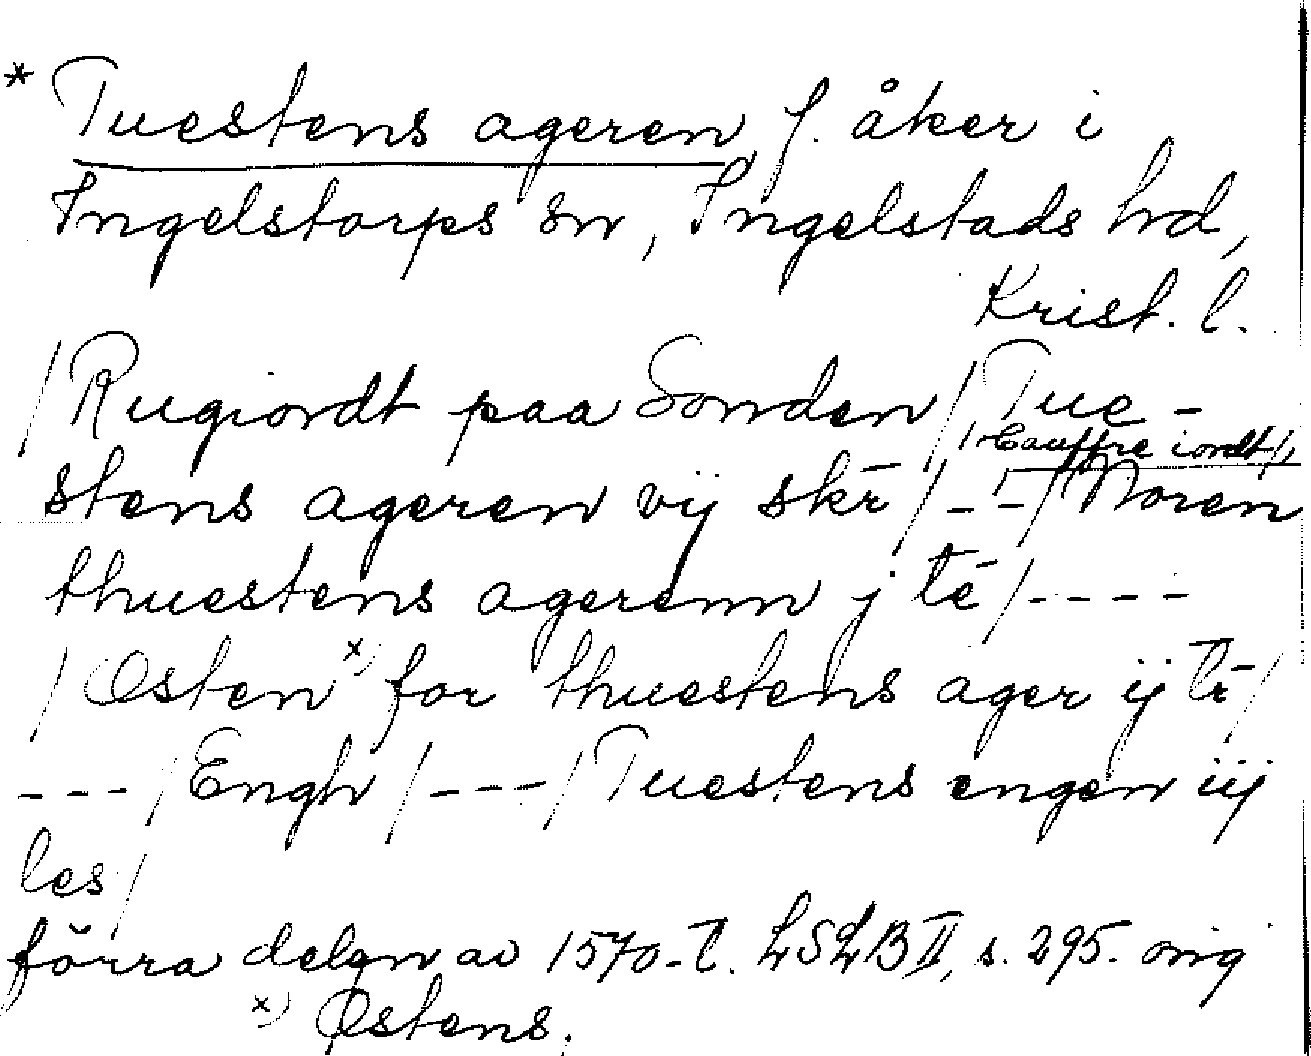 * Tuestens ageren, f. åker i
Ingelstorps sn, Ingelstads hd,
Krist. l.
/ Rugiordt paa Sønden / Tue-
/ Cauffre iordt /,
stens ageren vij skr̄ / - - / Noren
thuestens agerenn j tē / ----
/ Østen x) for thuestens ager ij tr̄ /
--- / Engh / --- / Tuestens engen iij
les /
förra delen av 1570-t. LSLB II, s. 295. orig
x) Østens.